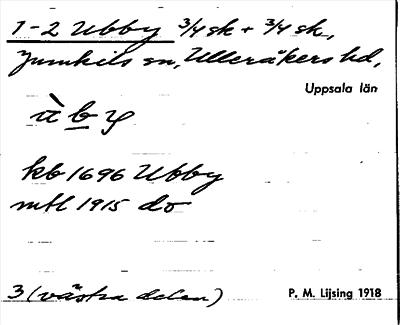 1-2 Ubby 3/4 sk + 3/4 sk,
Jumkils sn, Ulleråkers hd,
Uppsala län
ù b y
kb 1696 Ubby
mtl 1915 do
3 (västra delen)
P. M. Lijsing 1918